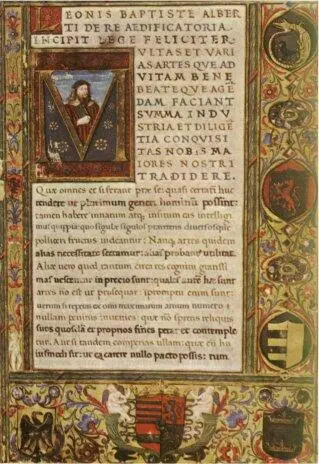 LEONIS BAPTISTE ALBER
TI DE RE AEDIFICATORIA.
INCIPIT LEGE FELICITER.
VLTAS ET VARI
AS ARTES QVE AD
VITAM BENE
BEATE QVE AGE
DAM FACIANT
SVMMA INDV
STRIA ET DILIGE
TIA CONQVISI
TAS NOBIS MA
IORES NOSTRI
TRADIDERE.
Quæ omnes et si ferant præ se: quasi certatim huc
tendere ut plurimum generi hominum possint:
tamen habere innatum atq. insitum eis intelligi
mus quippiam: quo singulæ singulos præ ceteris diversosque
polliceri fructus videantur: Namq. artes quidem
alias necessitate sectamur: alias probamus utilitate.
Aliæ vero quod tantum circa res cognitu gratissi
mas versentur in precio sunt: quales autem hæ sunt
artes non est ut prosequar: in promptu enim sunt:
verum si repetas ex omni maximarum artium numero
nullam penitus invenies: quæ non spretis reliquis
suos quosdam et proprios fines petat et contemple
tur. Aut si tandem comperias ullam: quæ cum hu
iusmodi sit: ut ea carere nullo pacto possis: tum